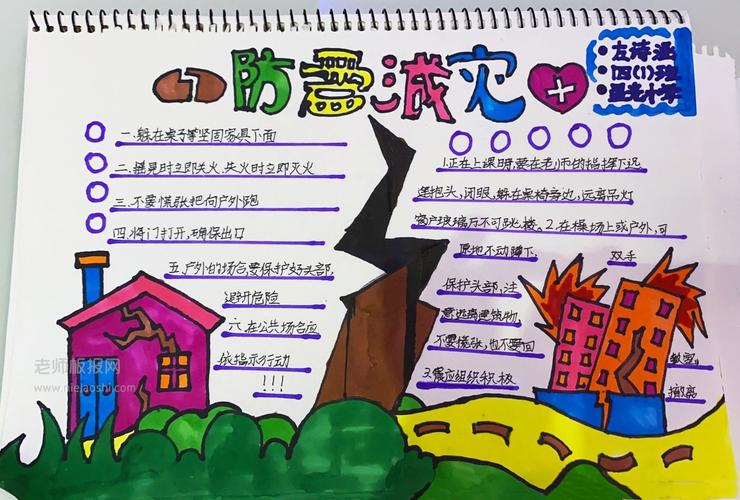 防震减灾
左诗涵
四(1)班
星光小学
一、躲在桌子等坚固家具下面
二、摇晃时立即关火,失火时立即灭火
三、不要慌张把向户外跑
四、将门打开,确保出口
五、户外的场合,要保护好头部,
避开危险
六、在公共场合应
依指示行动
!!!
1.正在上课时,要在老师的指挥下迅
速抱头,闭眼,躲在桌椅旁边,远离吊灯
窗户玻璃万不可跳楼。2.在操场上或户外,可
原地不动蹲下, 双手
保护头部,注
意远离建筑物,
不要慌张,也不要回
教室。
3.震应组织积极
撤离
老师板报网
www.nielaoshi.com